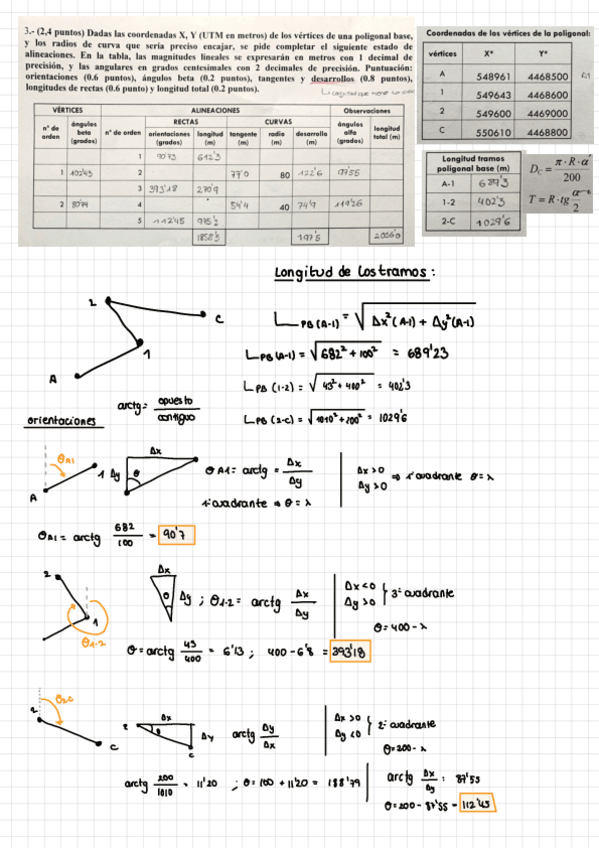 3.- (2,4 puntos) Dadas las coordenadas X, Y (UTM en metros) de los vértices de una poligonal base,
y los radios de curva que sería preciso encajar, se pide completar el siguiente estado de
alineaciones. En la tabla, las magnitudes lineales se expresarán en metros con 1 decimal de
precisión, y las angulares en grados centesimales con 2 decimales de precisión. Puntuación:
orientaciones (0.6 puntos), ángulos beta (0.2 puntos), tangentes y desarrollos (0.8 puntos),
longitudes de rectas (0.6 punto) y longitud total (0.2 puntos).
VÉRTICES ALINEACIONES Observaciones
RECTAS CURVAS
nº de orden ángulos beta (grados) nº de orden orientaciones (grados) longitud (m) tangente (m) radio (m) desarrollo (m) ángulos alfa (grados) longitud total (m)
1 90'73 612'3
1 102'45 2 77'0 80 122'6 97'55
3 393'18 270'9
2 80'74 4 54'4 40 74'9 119'26
5 112'45 975'2
1858'5 197'5 2056'0
Coordenadas de los vértices de la poligonal:
vértices Xª Yª
A 548961 4468500
1 549643 4468600
2 549600 4469000
C 550610 4468800
Longitud tramos
poligonal base (m)
A-1 689'3
1-2 402'3
2-C 1029'6
D_C = π · R · α / 200
T = R · tg α / 2
Longitud de los tramos:
2
C
1
A
L PB (A-1) = √Δx²(A-1) + Δy²(A-1)
L PB (A-1) = √682² + 100² = 689'23
L PB (1-2) = √43² + 400² = 402'3
L PB (2-C) = √1010² + 200² = 1029'6
arctg = opuesto / contiguo
orientaciones
θA1
A
1
Δx
Δy
θ
θ A1 = arctg = Δx / Δy
1º cuadrante ⇒ θ = λ
Δx > 0
Δy > 0 ⇒ 1º cuadrante θ = λ
θA1 = arctg 682 / 100 = 90'7
2
1
θ1-2
Δx
θ
Δy ; θ1-2 = arctg Δx / Δy
Δx < 0
Δy > 0 } 3º cuadrante
θ = 400 - λ
θ = arctg 43 / 400 = 6'13 ; 400 - 6'8 = 393'18
θ2C
2
C
Δx
2
θ
Δy
C
arctg Δy / Δx
Δx > 0
Δy < 0 } 2º cuadrante
θ = 200 - λ
arctg 200 / 1010 = 11'20 ; θ = 100 + 11'20 = 188'79
arctg Δx / Δy : 87'55
θ = 200 - 87'55 = 112'45